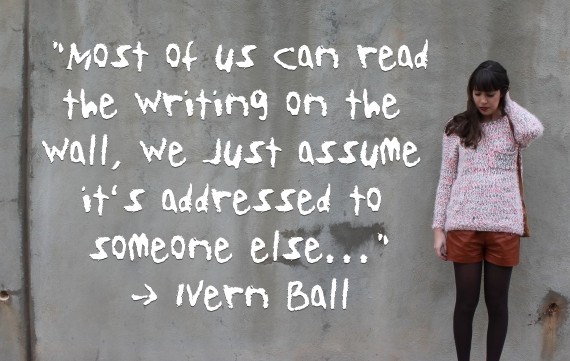 "Most of us can read
the writing on the
wall, we just assume
it's addressed to
someone else..."
→ Ivern Ball